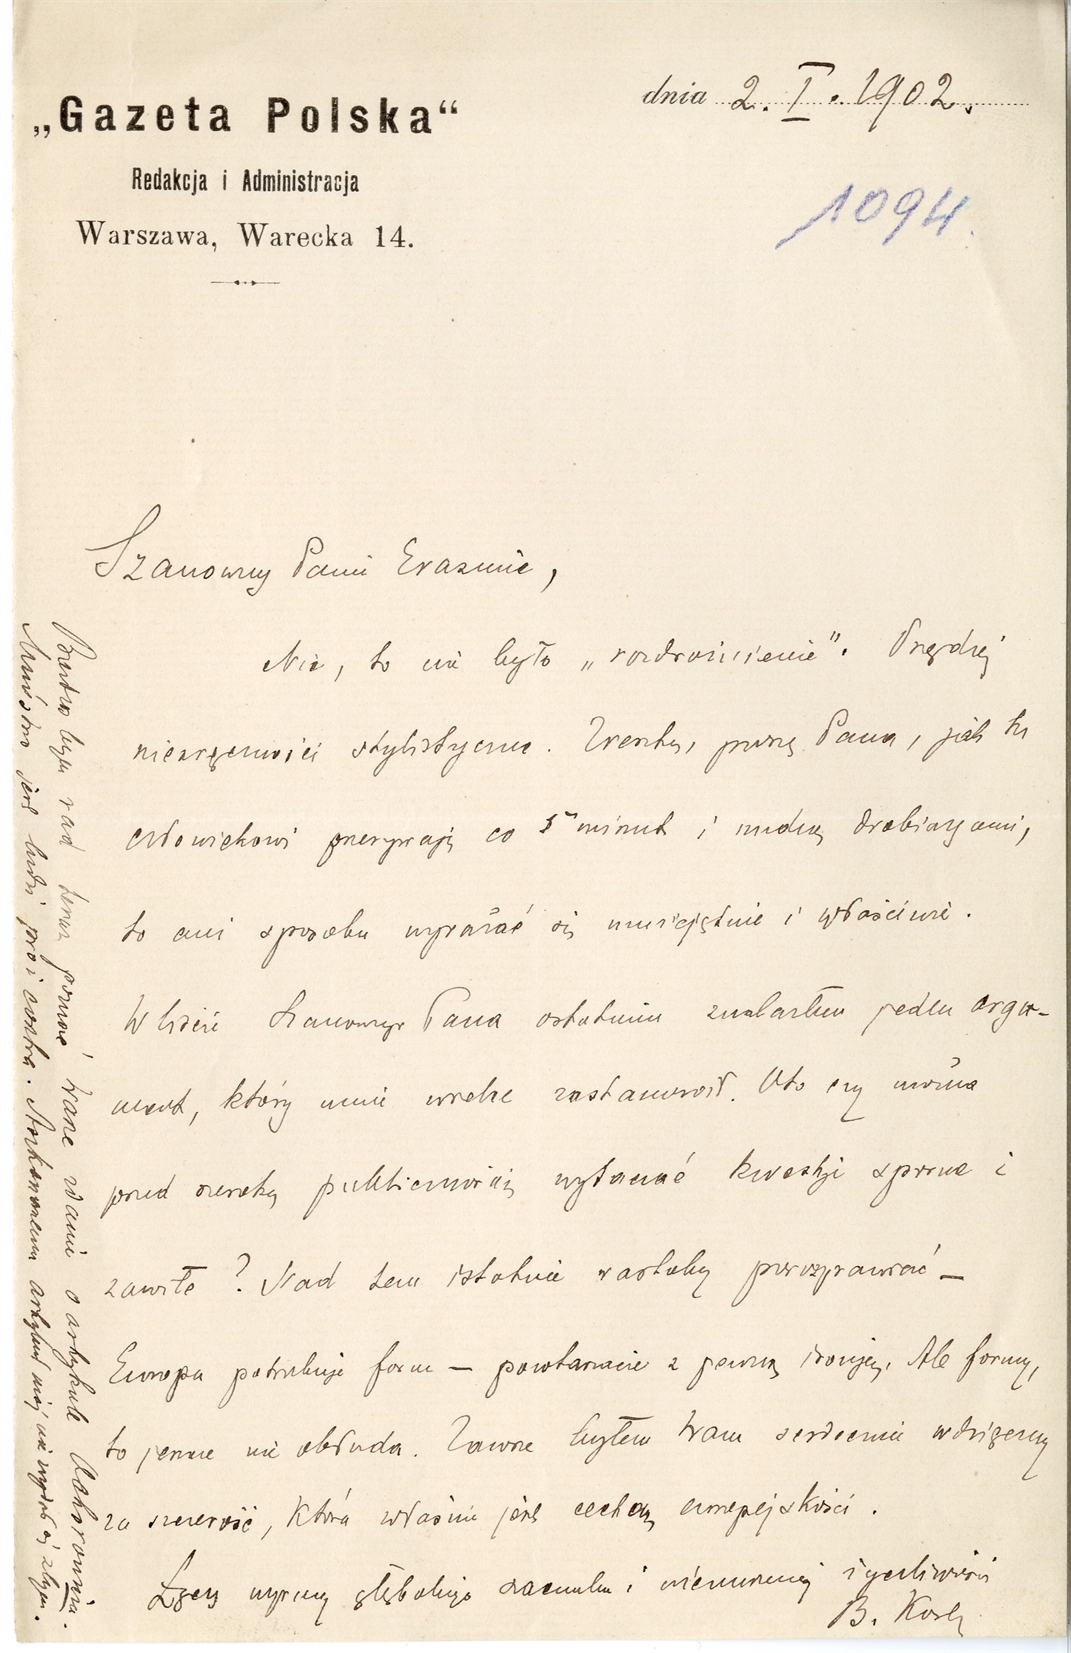 „Gazeta Polska“
Redakcja i Administracja
Warszawa, Warecka 14.
dnia 2. I. 1902.
1094.
Szanowny Panie Erazmie,
Nie, to nie było „rozdrażnienie”. Prędzej
niezręczność stylistyczna. Zresztą, proszę Pana, jak tu
człowiekowi przerywają co 5 minut i nudzą drobiazgami,
to ani sposobu wyrażać się umiejętnie i właściwie.
W liście Szanownego Pana ostatnim znalazłem jeden argu-
ment, który mnie zastanowił. Oto czy można
przed szeroką publicznością wytaczać kwestje sporne i
zawiłe? Nad tem istotnie warto by porozprawiać —
Europa potrzebuje form — powtarzacie z pewną ironją. Ale formy,
to jeszcze nie obłuda. Zawsze byłem Wam serdecznie wdzięczny
za szczerość, która właśnie jest cechą europejskości.
Łączę wyrazy głębokiego szacunku i niezmiennej życzliwości
B. Kosk
Bardzo bym rad teraz poznać Wasze zdanie o artykule
Mnóstwo jest ludzi pro i contra. artykuł mój nie wydał się złym.